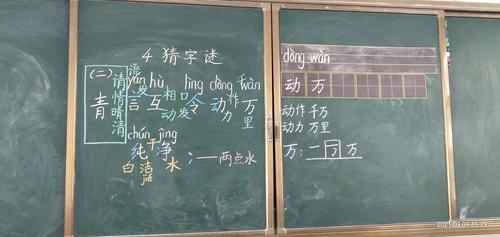 4 猜字谜
(二)
青
请
情
晴
清
yán hù lìng dòng wàn
语
发
言 互 令 动 万
相 口 作
动 发 力 里
chún jìng
纯 干 净
白 洁 水
jié
冫:— 两点水
dòng wàn
动 万
动作 千万
动力 万里
万:一 丆 万
2021.03.09 15:29